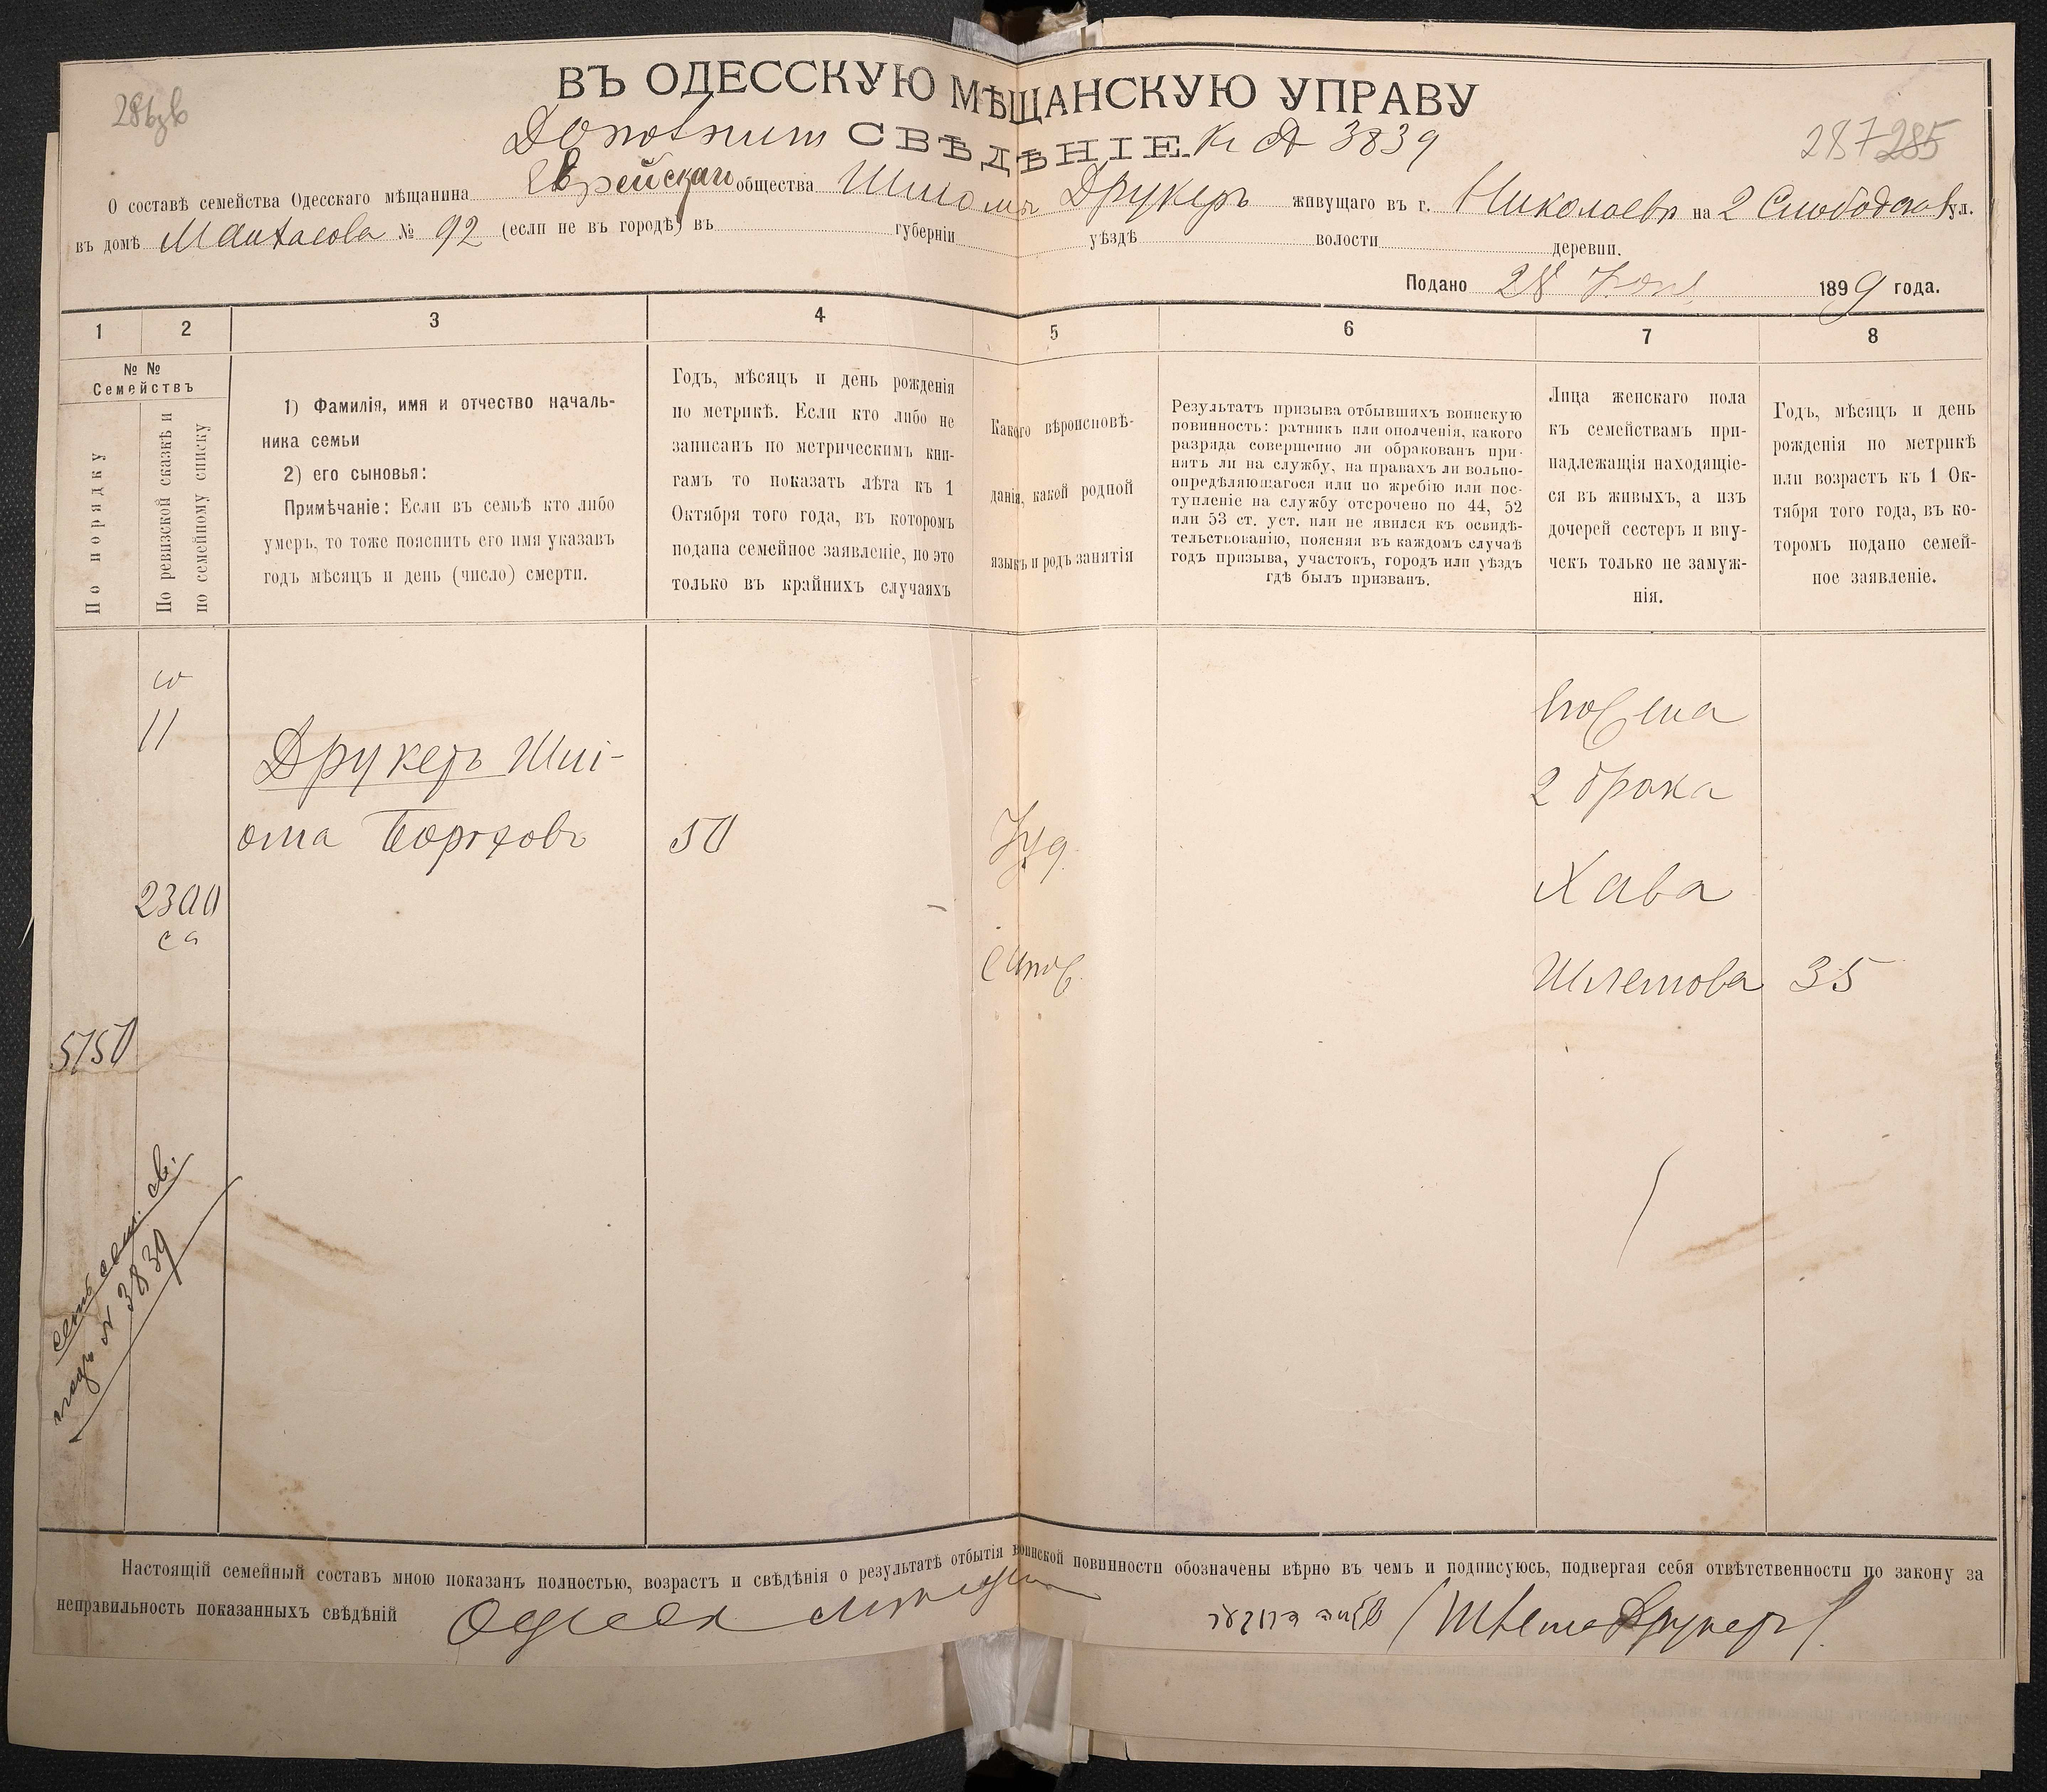 ВЪ ОДЕССКУЮ МѢЩАНСКУЮ УПРАВУ
СВѢДѢНІЕ. К № 3839
287 285
О составѣ семейства Одесскаго мѣщанина Еврейскаго общества Шлиома Друкеръ живущаго въ г. Николаевѣ на 2 Слободской ул.
въ домѣ № 92 (если не въ городѣ) въ губерніи уѣздѣ волости деревни.
Подано 28 1899 года.
1 2 3 4 5 6 7 8
№ №
Семействъ
По порядку
По ревизской сказкѣ и
по семейному списку
1) Фамилія, имя и отчество началь-
ника семьи
2) его сыновья:
Примѣчаніе: Если въ семьѣ кто либо
умеръ, то тоже пояснить его имя указавъ
годъ мѣсяцъ и день (число) смерти.
Годъ, мѣсяцъ и день рожденія
по метрикѣ. Если кто либо не
записанъ по метрическимъ кни-
гамъ то показать лѣта къ 1
Октября того года, въ которомъ
подана семейное заявленіе, но это
только въ крайнихъ случаяхъ
Какого вѣроисповѣ-
данія, какой родной
языкъ и родъ занятія
Результатъ призыва отбывшихъ воинскую
повинность: ратникъ или ополченія, какого
разряда совершенно ли обракованъ при-
нятъ ли на службу, на правахъ ли вольно-
опредѣляющагося или по жребію или пос-
тупленіе на службу отсрочено по 44, 52
или 53 ст. уст. или не явился къ освидѣ-
тельствованію, поясняя въ каждомъ случаѣ
годъ призыва, участокъ, городъ или уѣздъ
гдѣ былъ призванъ.
Лица женскаго пола
къ семействамъ при-
надлежащія находящіе-
ся въ живыхъ, а изъ
дочерей сестеръ и вну-
чекъ только не замуж-
нія.
Годъ, мѣсяцъ и день
рожденія по метрикѣ
или возрастъ къ 1 Ок-
тября того года, въ ко-
торомъ подано семей-
ное заявленіе.
11
Друкеръ Шлі-
ома Бороховъ 50 Іуд.
2300
5750
2 брака
Хава
Шлемова 35
№ 3839
Настоящій семейный составъ мною показанъ полностью, возрастъ и свѣдѣнія о результатѣ отбытія воинской повинности обозначены вѣрно въ чемъ и подписуюсь, подвергая себя отвѣтственности по закону за
неправильность показанныхъ свѣдѣній